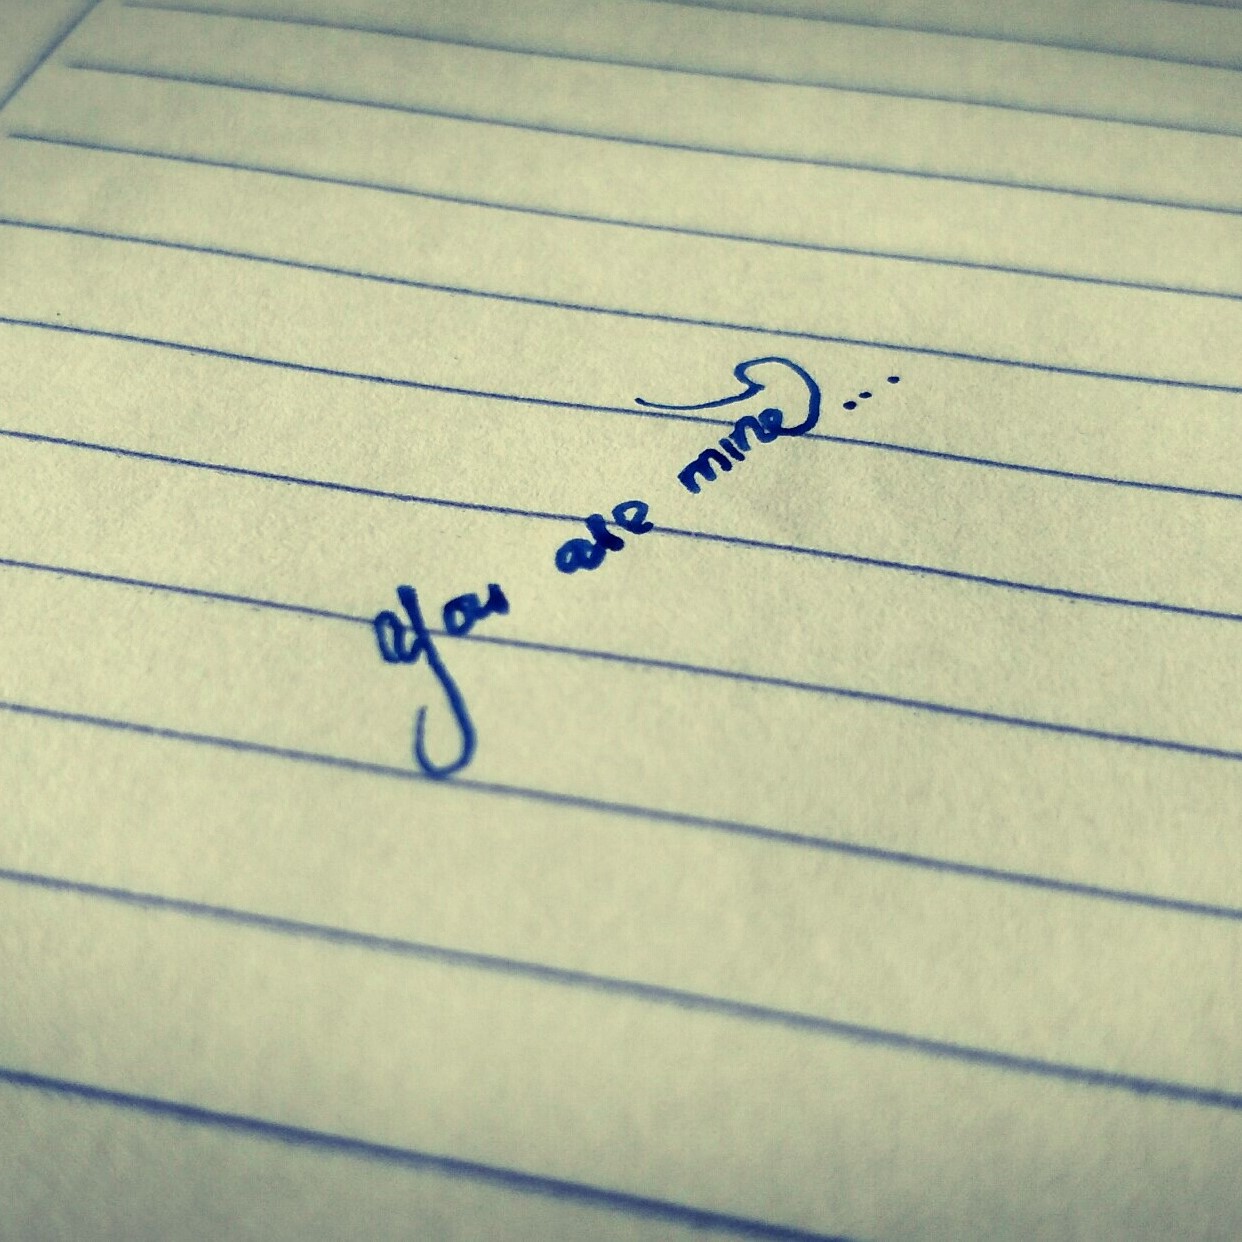 You are mine...